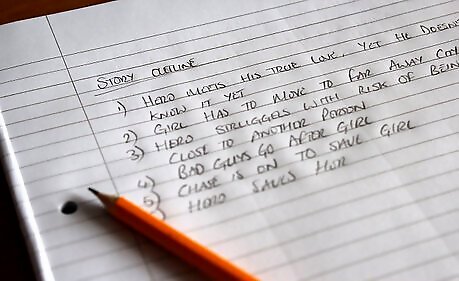 STORY OUTLINE
1) HERO MEETS HIS TRUE LOVE, YET HE DOESN'T
KNOW IT YET
2) GIRL HAS TO MOVE TO FAR AWAY
3) HERO STRUGGLES WITH RISK OF BEING
CLOSE TO ANOTHER PERSON
4) BAD GUYS GO AFTER GIRL
5) CHASE IS ON TO SAVE GIRL
HERO SAVES HER